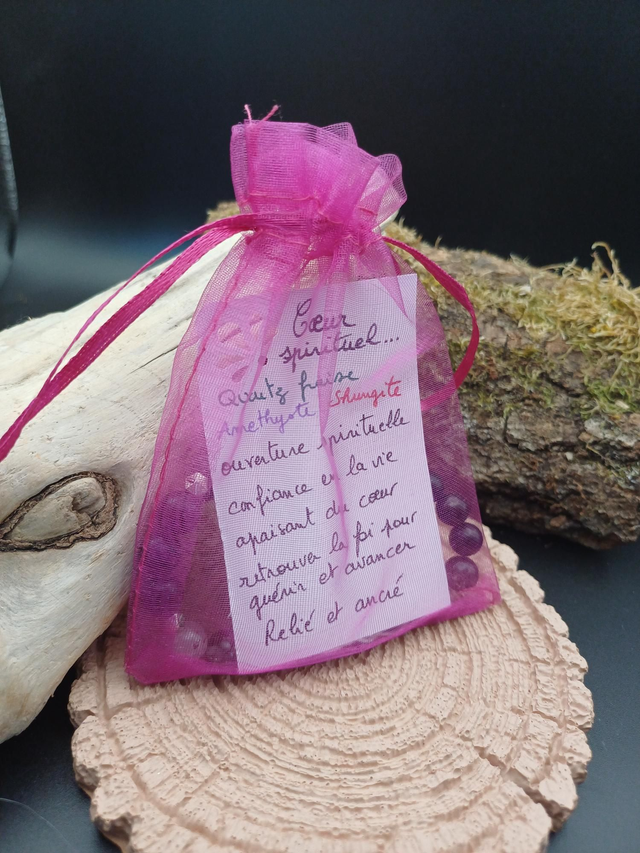 Cœur
spirituel...
Quartz fraise
Améthyste Shungite
ouverture spirituelle
confiance en la vie
apaisant du cœur
retrouver la foi pour
guérir et avancer
Relié et ancré